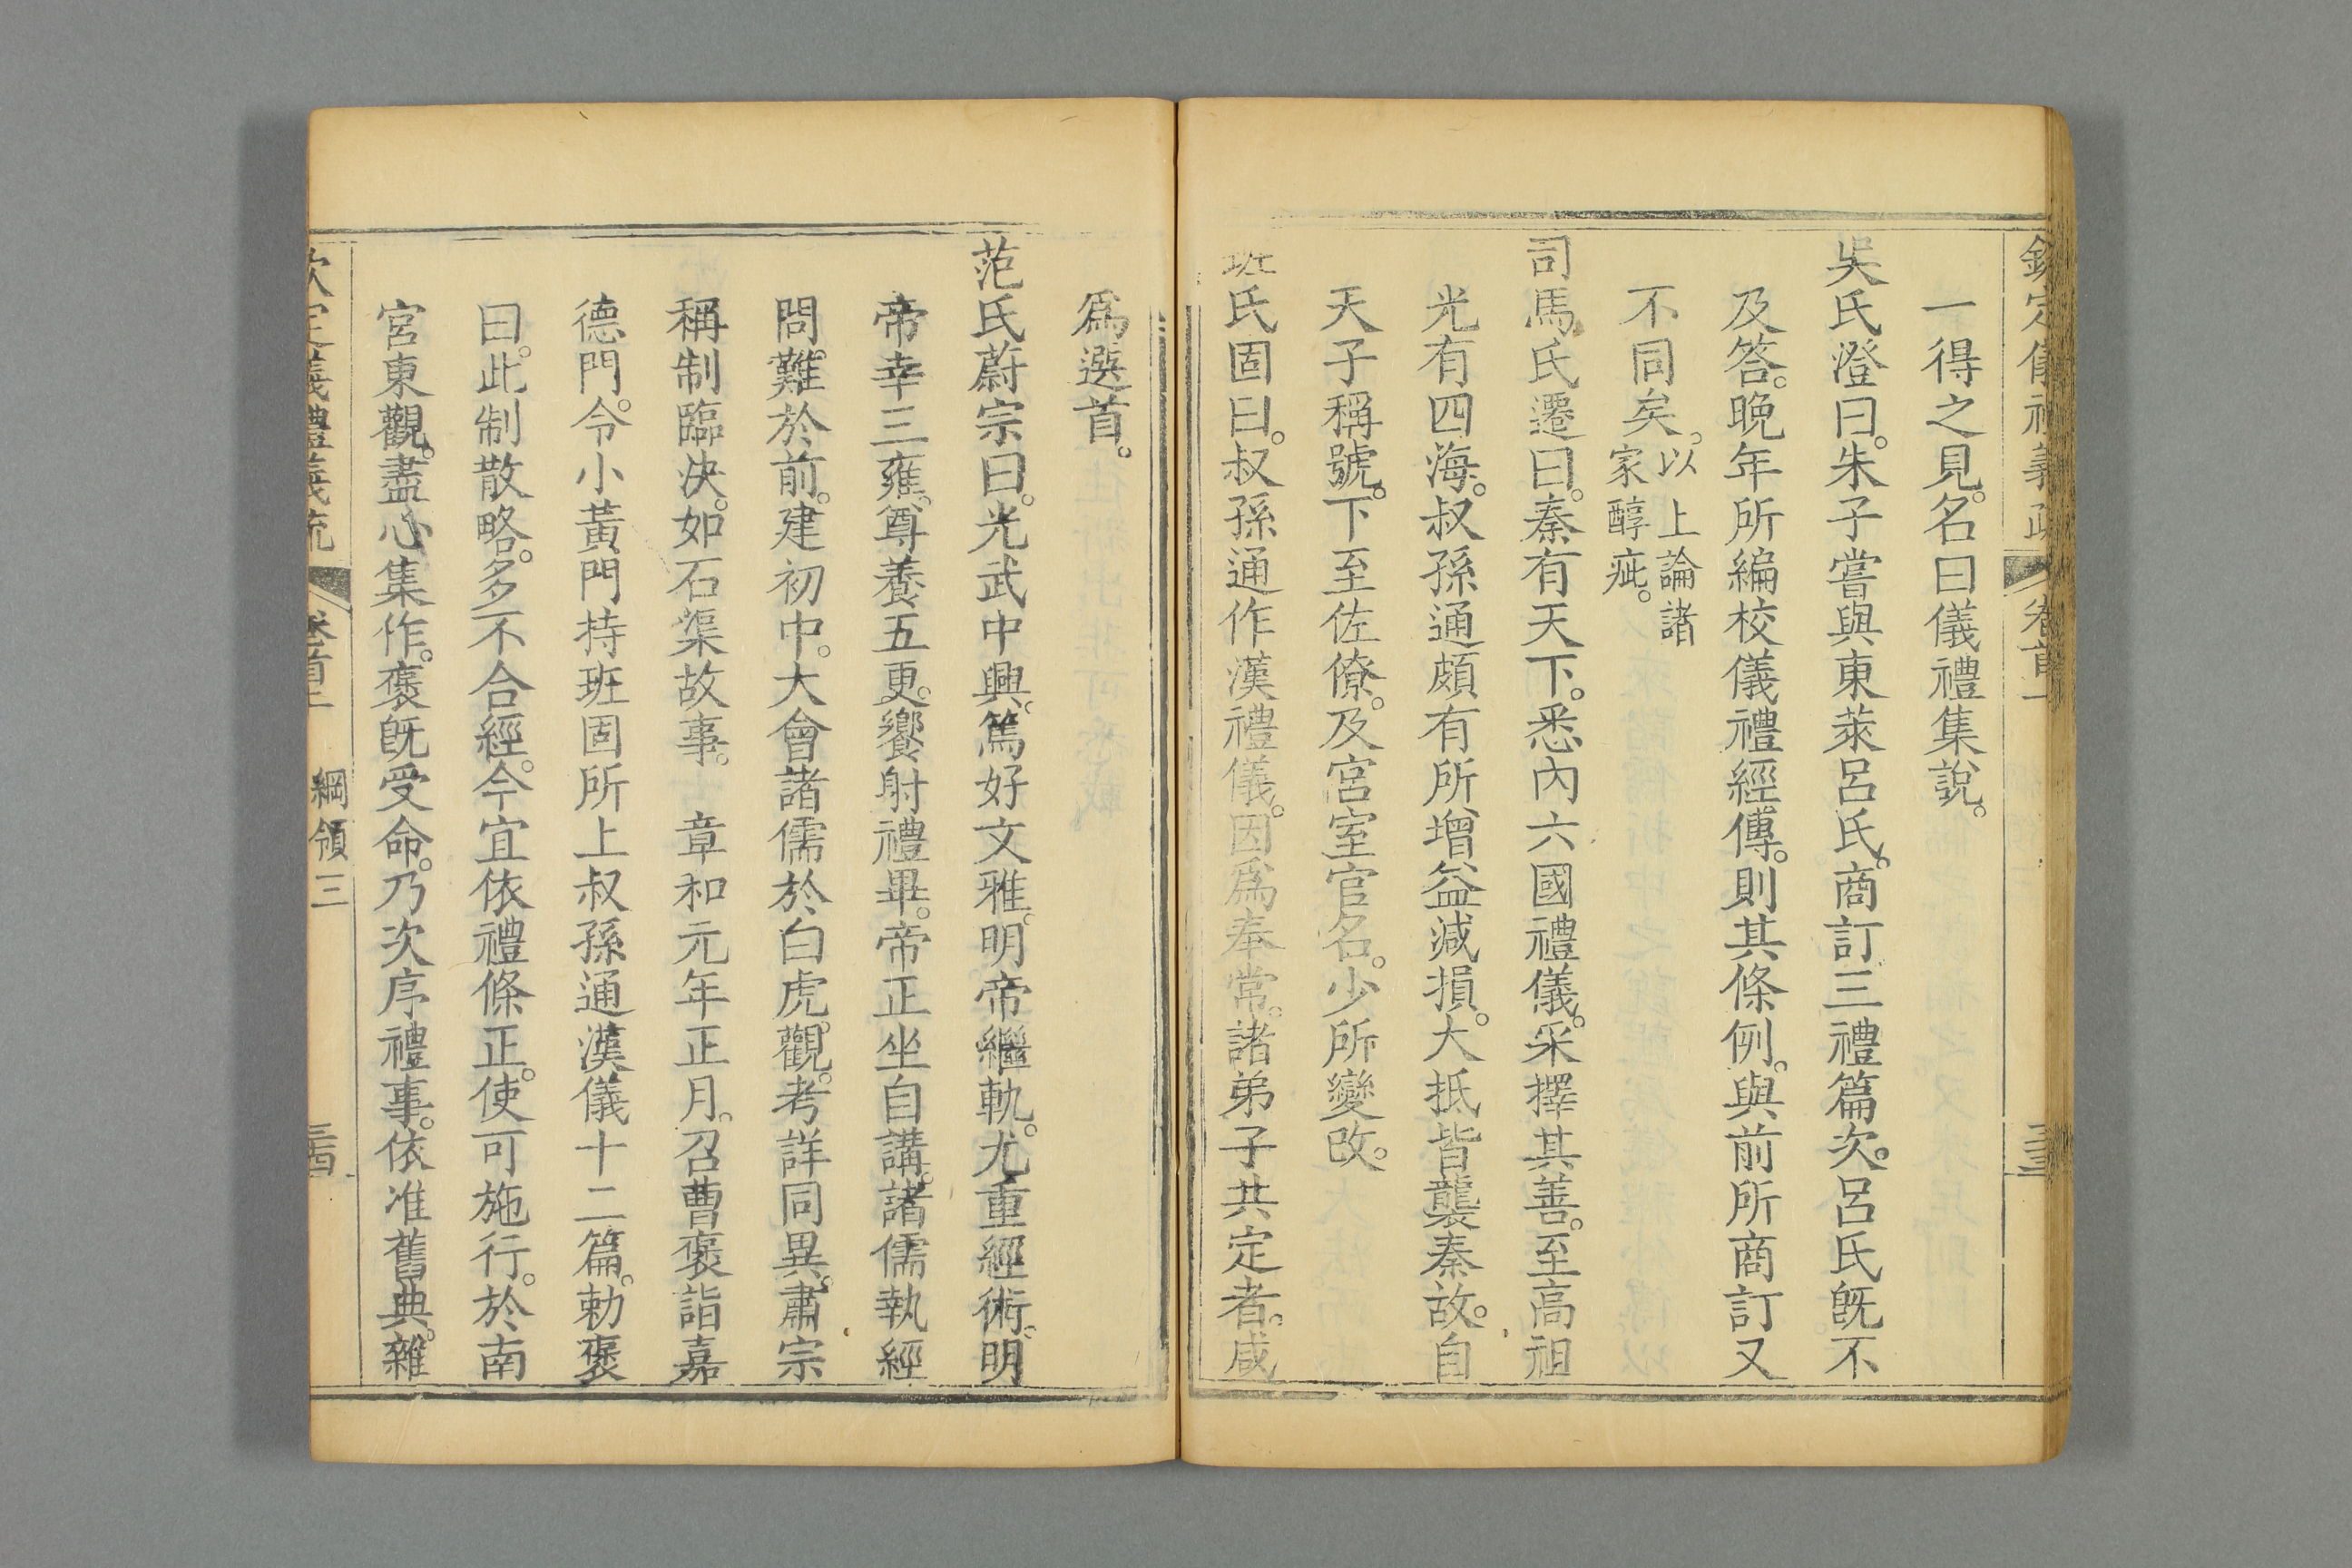 欽定儀禮義疏 卷首 三三
一得之見。名曰儀禮集說。
吳氏澄曰。朱子嘗與東萊呂氏。商訂三禮篇次。呂氏旣不
及答。晚年所編校儀禮經傳。則其條例。與前所商訂又
不同矣。以上論諸
家醇疵。
司馬氏遷曰。秦有天下。悉內六國禮儀。采擇其善。至高祖
光有四海。叔孫通頗有所增益減損。大抵皆襲秦故。自
天子稱號。下至佐僚。及宮室官名。少所變改。
班氏固曰。叔孫通作漢禮儀。因爲奉常。諸弟子共定者。咸
爲選首。
范氏蔚宗曰。光武中興。篤好文雅。明帝繼軌。尤重經術。明
帝幸三雍。尊養五更。饗射禮畢。帝正坐自講。諸儒執經
問難於前。建初中。大會諸儒於白虎觀。考詳同異。肅宗
稱制臨決。如石渠故事。 章和元年正月。召曹褒詣嘉
德門。令小黃門持班固所上叔孫通漢儀十二篇。勅褒
曰。此制散略。多不合經。今宜依禮條正。使可施行。於南
宮東觀。盡心集作。褒旣受命。乃次序禮事。依准舊典。雜
欽定儀禮義疏 卷首 綱領三 三四